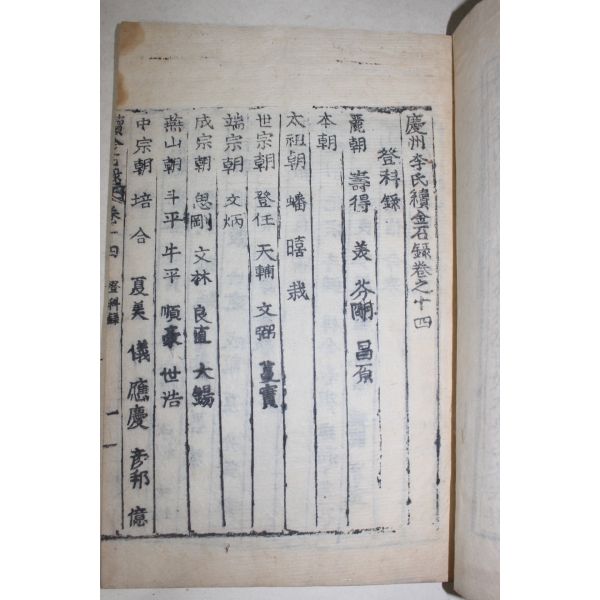 慶州李氏續金石錄卷之十四
登科錄
麗朝 壽得 美 芬 昌原
本朝
太祖朝 蟠 暿 哉
世宗朝 登任 天輔 文弼 蔓實
端宗朝 文炳
成宗朝 思剛 文林 良直 大錫
燕山朝 斗平 牛平 順豪 世浩
中宗朝 培 合 夏美 儀 應慶 彦邦 億
續金石錄 卷十四 登科錄 一